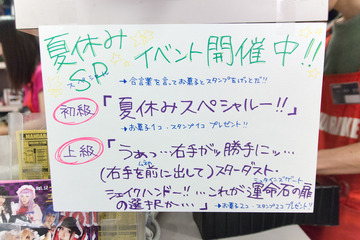 夏休み
SP
スペシャル
イベント開催中!!
→合言葉を言ってお菓子とスタンプをげっとだ!!
初級「夏休みスペシャルー!!」
→お菓子1コ・スタンプ1コ プレゼント!!
上級「うぁっ…右手がッ勝手にッ…
(右手を前に出して)スターダスト・
シェイクハンドー!!…これが運命石の扉
シュタインズゲート
の選択か…」
→お菓子2コ・スタンプ2コ プレゼント!!